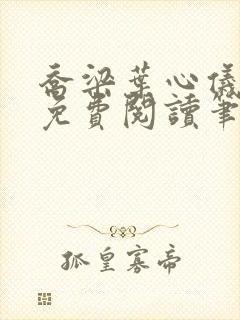 喬梁葉心儀
免費閱讀筆
孤皇寡帝